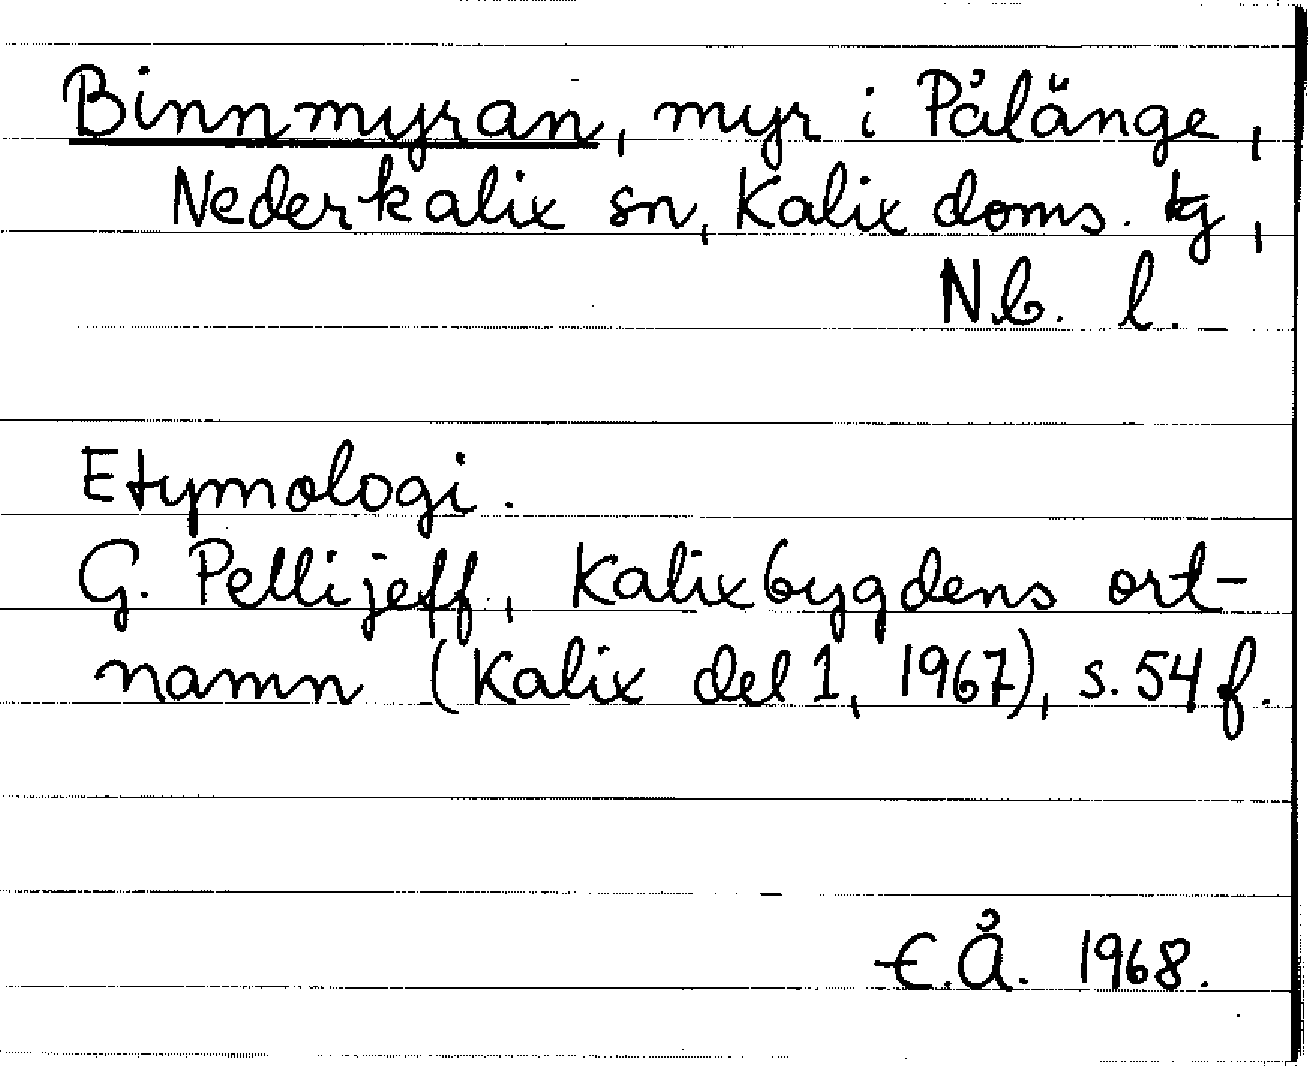 Binnmyran, myr i Pålänge,
Nederkalix sn, Kalix doms. tg,
N.b. l.
Etymologi.
G. Pellijeff, Kalixbygdens ort-
namn (Kalix del 1, 1967), s. 54 f.
E.Å. 1968.